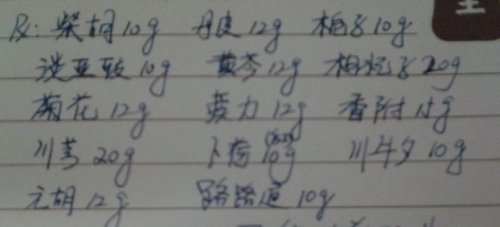 R: 柴胡10g 丹皮12g 栀子10g
淡豆豉10g 黄芩12g 枸杞子20g
菊花12g 12g 香附15g
川芎20g 卜荷10g 川牛夕10g
元胡12g 路路通10g